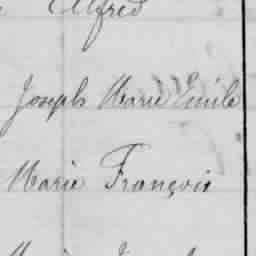 Alfred
Joseph Marie Emile
Marie François